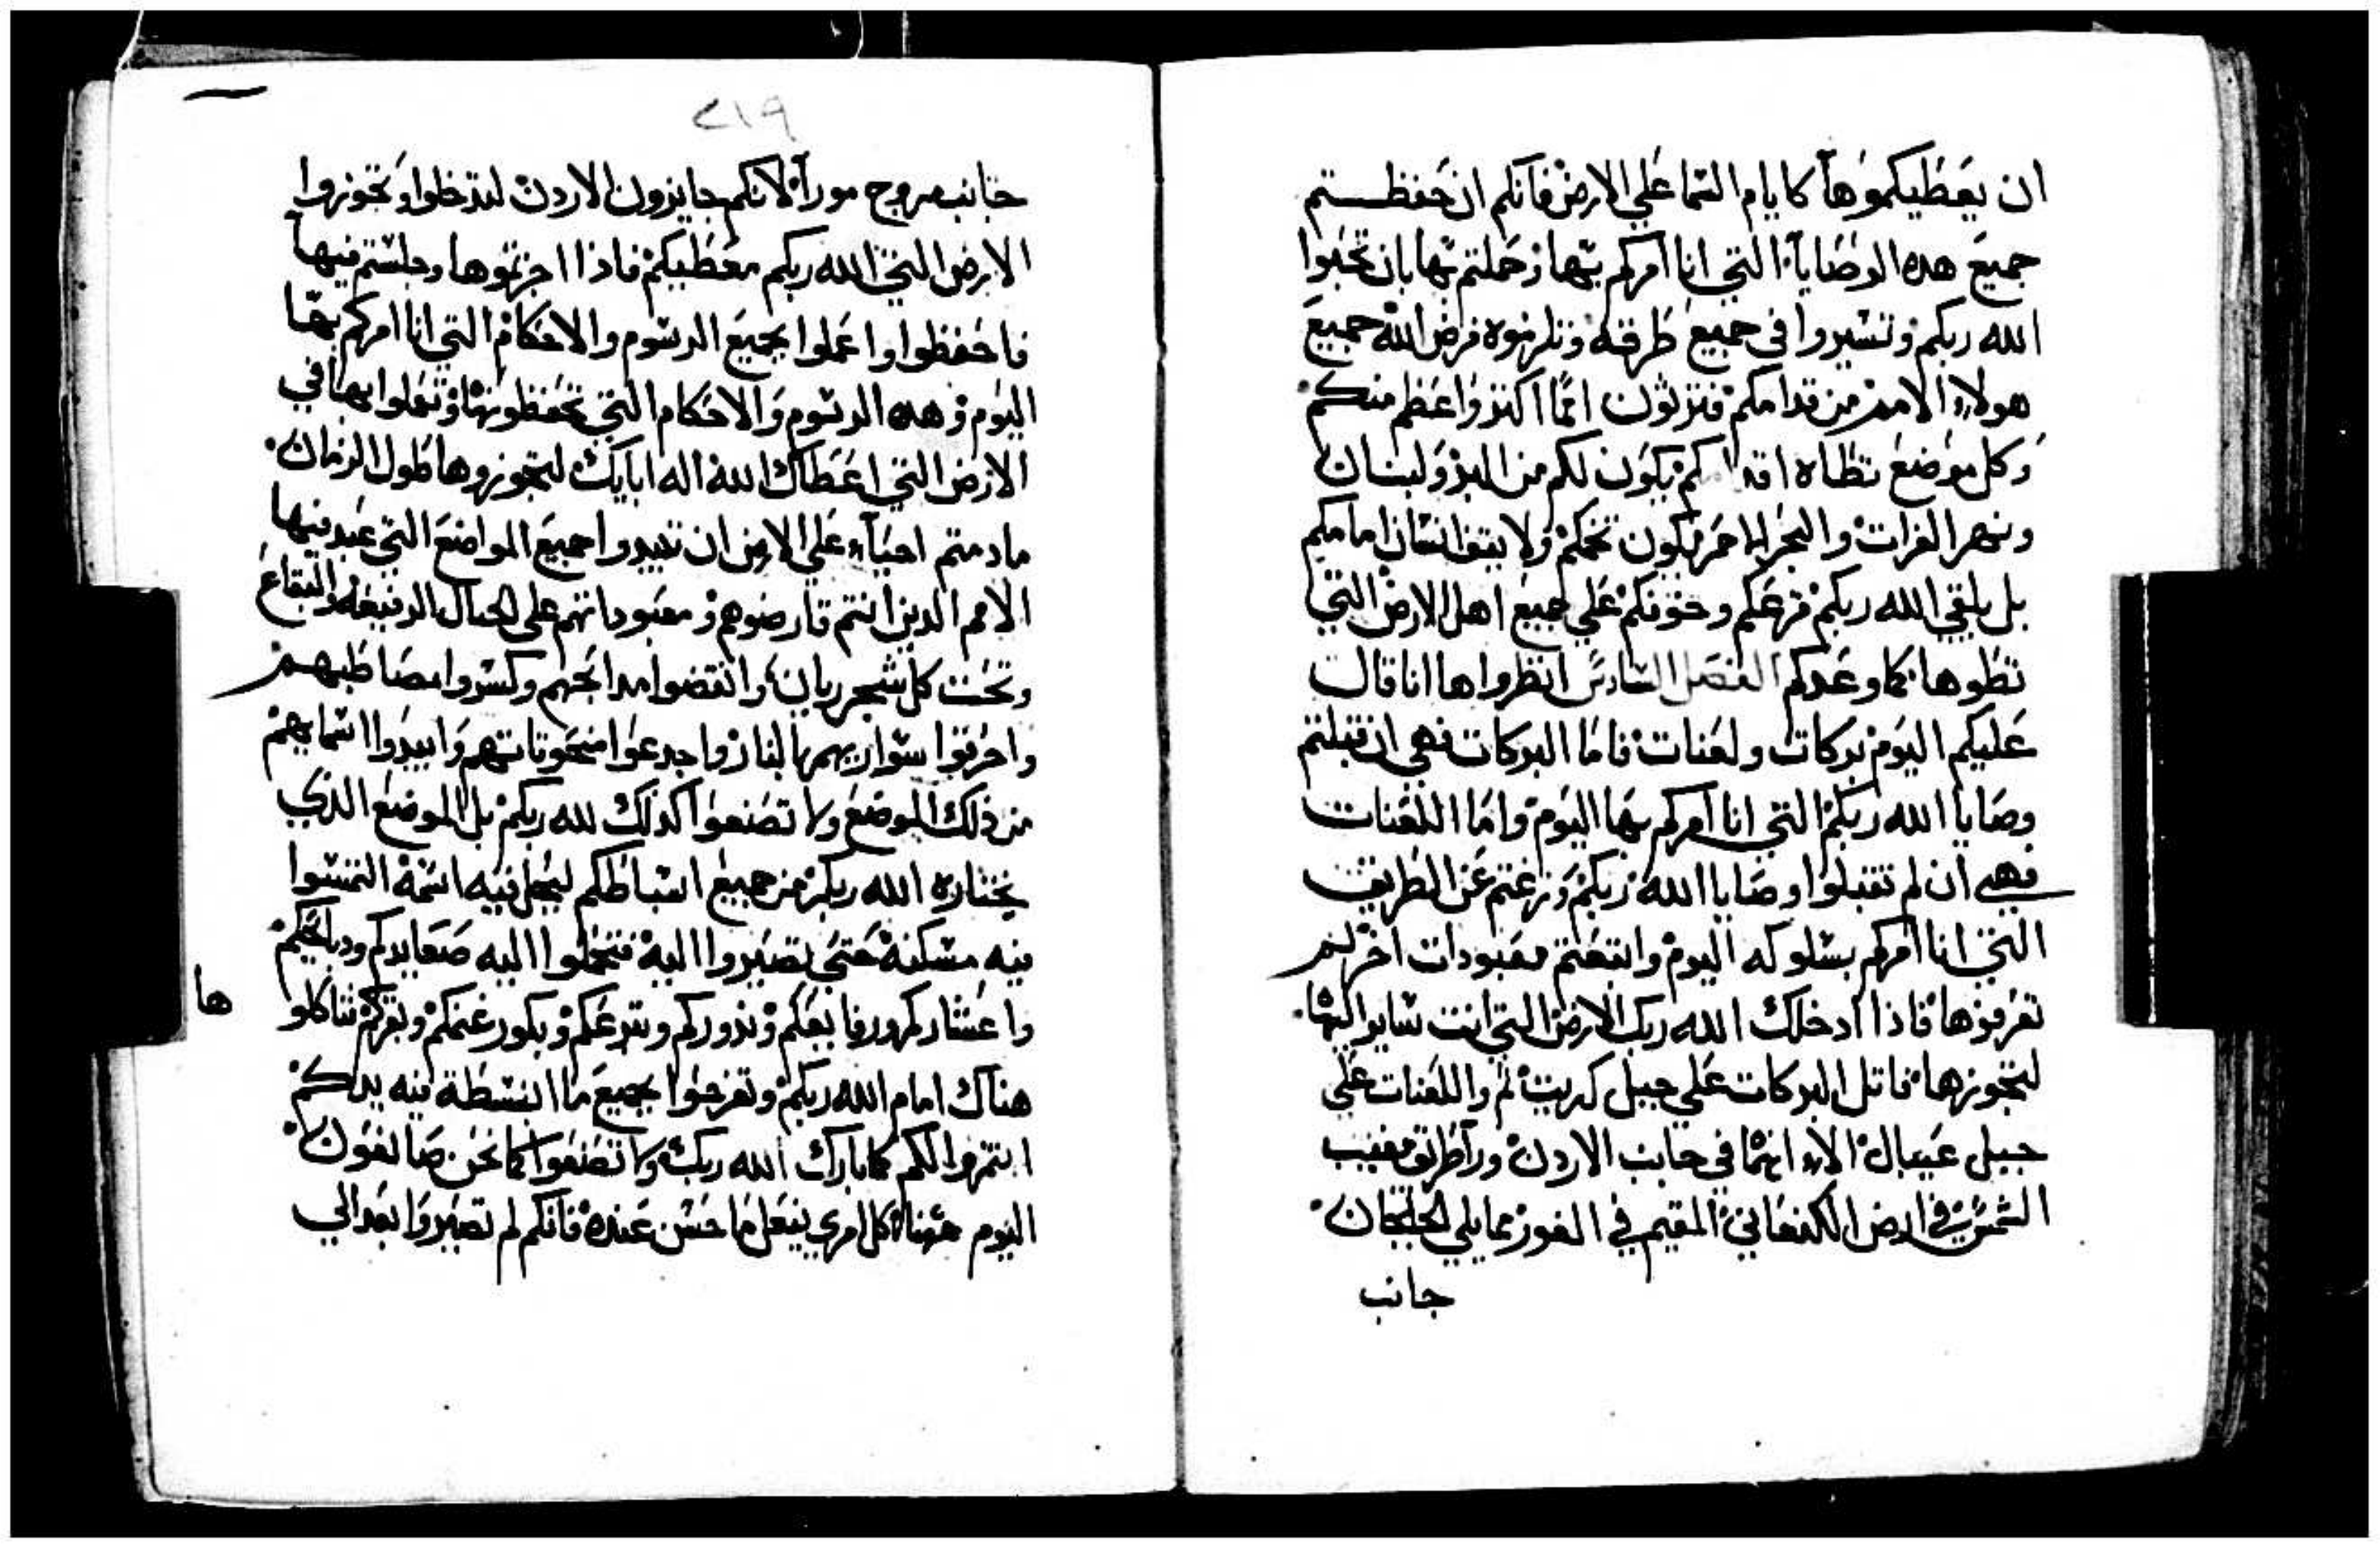 ان يعطيكموها كايام السما علي الارض فانكم ان حفظتم
جميع هده الوصايا التي انا امركم بها وعملتم بها بان تحبوا
الله ربكم وتسيروا في جميع طرقه وتلزموه قرض الله جميع
هولاء الامم من قدامكم فترثون امما اكثر واعظم منكم
وكل موضع تطاه اقدامكم يكون لكم من البر ولبنان
ونهر الفرات والبحر الاخر يكون تخمكم ولا يقف انسان امامكم
بل يلقي الله ربكم فزعكم وخوفكم علي جميع اهل الارض التي
تطوها كما وعدكم الفصل السادس انظروا ها انا قالت
عليكم اليوم بركات ولعنات فاما البركات فهي ان قبلتم
وصايا الله ربكم التي انا امركم بها اليوم واما اللعنات
فهي ان لم تقبلوا وصايا الله ربكم وزغتم عن الطريق
التي انا امركم بسلوكه اليوم واتبعتم معبودات اخر لم
تعرفوها فاذا ادخلك الله ربك الارض التي انت ساير اليها
لتحوزها فاتل البركات علي جبل كريت ثم واللعنات علي
جبل عيبال الاء انهما في جانب الاردن ورا طريق مغيب
الشمس في ارض الكنعاني المقيم في الغور مما يلي الجلجال
جانب
٢١٩
جانب مروج مورا لانكم جايزون الاردن لتدخلوا وتحوزوا
الارض التي الله ربكم معطيكم فاذا احزتموها وجلستم فيها
فاحفظوا واعملوا بجميع الرسوم والاحكام التي انا امركم بها
اليوم وهده الرسوم والاحكام التي تحفظونها وتعملوا بها في
الارض التي اعطاك الله اله ابايك لتحوزوها طول الزمان
مادمتم احياء علي الارض ان تبيدوا جميع المواضع التي عبد فيها
الامم الدين انتم قارضوهم ومعبوداتهم علي الجبال الرفيعه والبقاع
وتحت كل شجر ريان وانقضوا مدابحهم وكسروا مصاطبهم
واحرقوا سواريهم بالنار واجدعوا منحوتاتهم وابيدوا اسمايهم
من ذلك الموضع ولا تصنعوا كدلك لله ربكم بل الموضع الذي
يختاره الله ربكم من جميع اسباطكم ليجعل فيه اسمه التمسوا
فيه مسكنه حتي تصيروا اليه فتحملوا اليه صعايدكم ودبايحكم
واعشاركم ورفايعكم وندوركم وتبرعكم وبكور غنمكم وبقركم فتاكلو
ها
هناك امام الله ربكم وتفرحوا بجميع ما انبسطة فيه يدكم
انتم والكم كما بارك الله ربك ولا تصنعوا كما نحن صانعون
اليوم ههنا كل امري يفعل ما حسن عنده فانكم لم تصيروا بعد الي